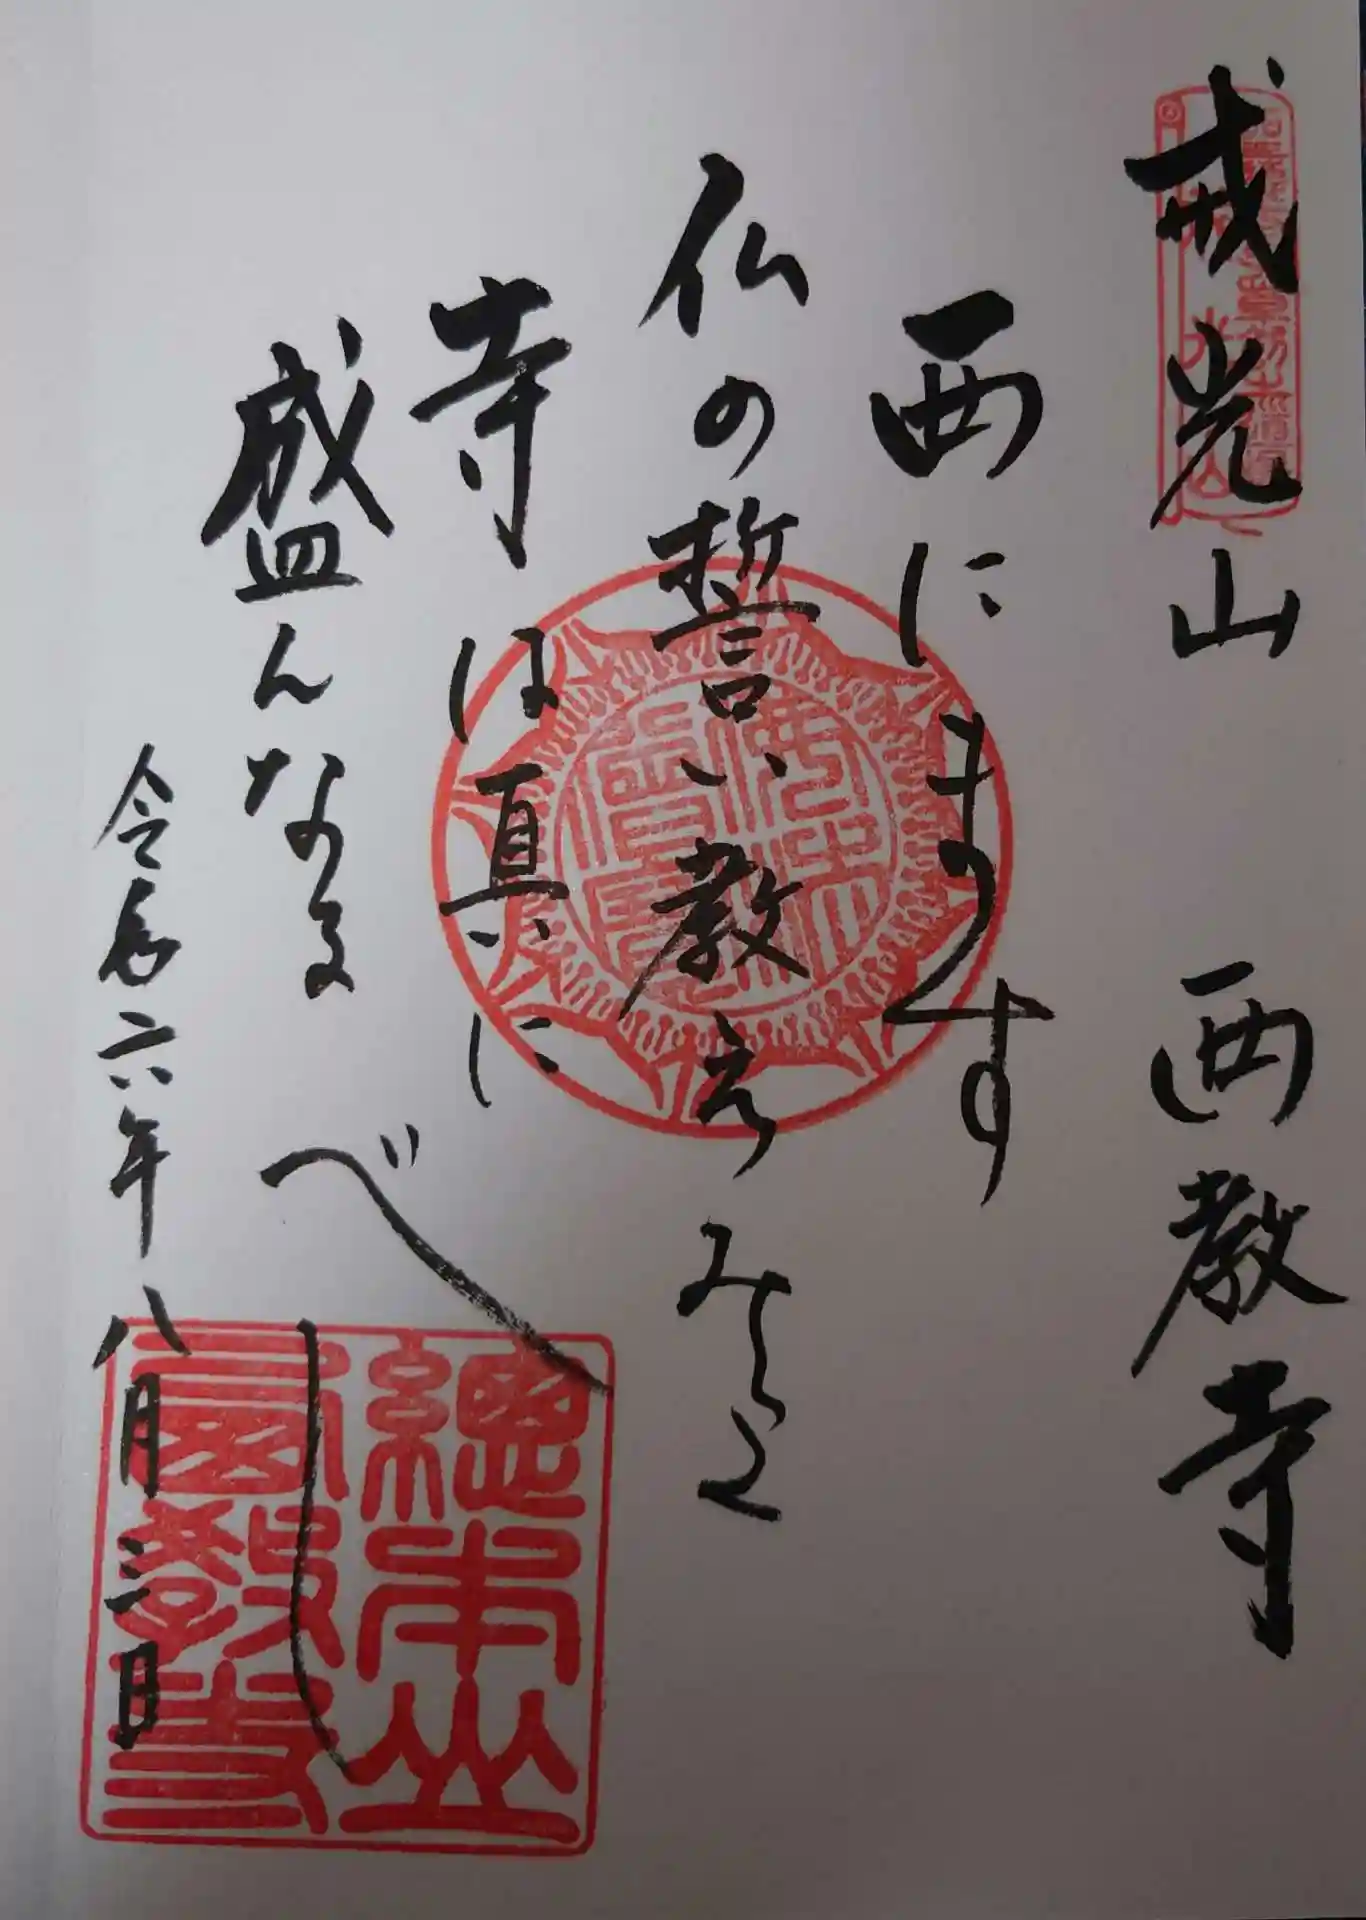 戒光山 西教寺
西にます
仏の誓い教えみつ
寺は真に
盛んなる
べし
令和六年八月三日
總本山
西教寺